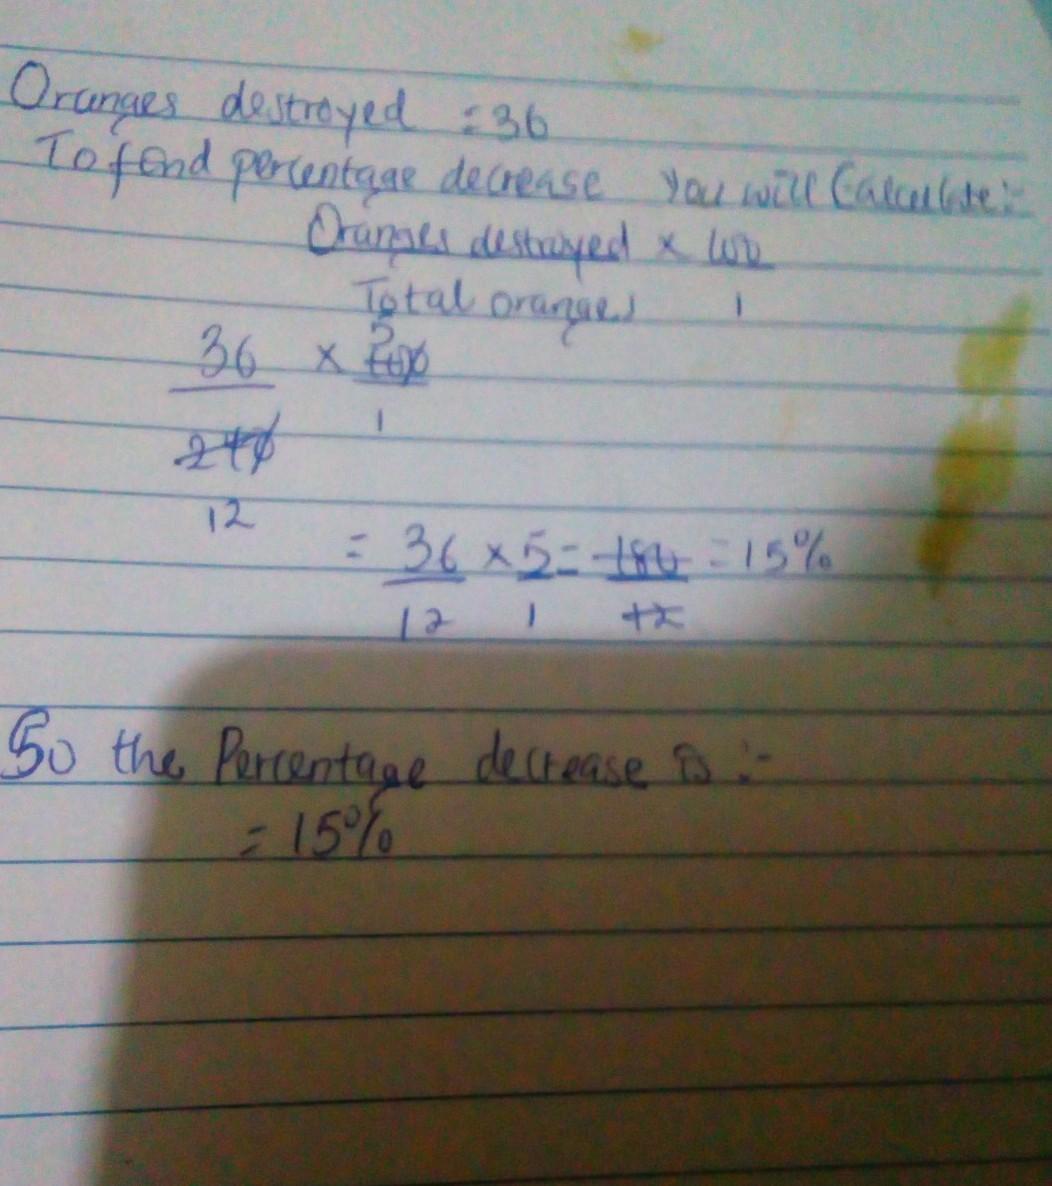 Oranges destroyed = 36
To find percentage decrease you will Calculate:-
Oranges destroyed x 100
Total oranges 1
5
36 x 100
240 1
12
= 36 x 5 = 180 = 15%
12 1 12
So the Percentage decrease is :-
= 15%